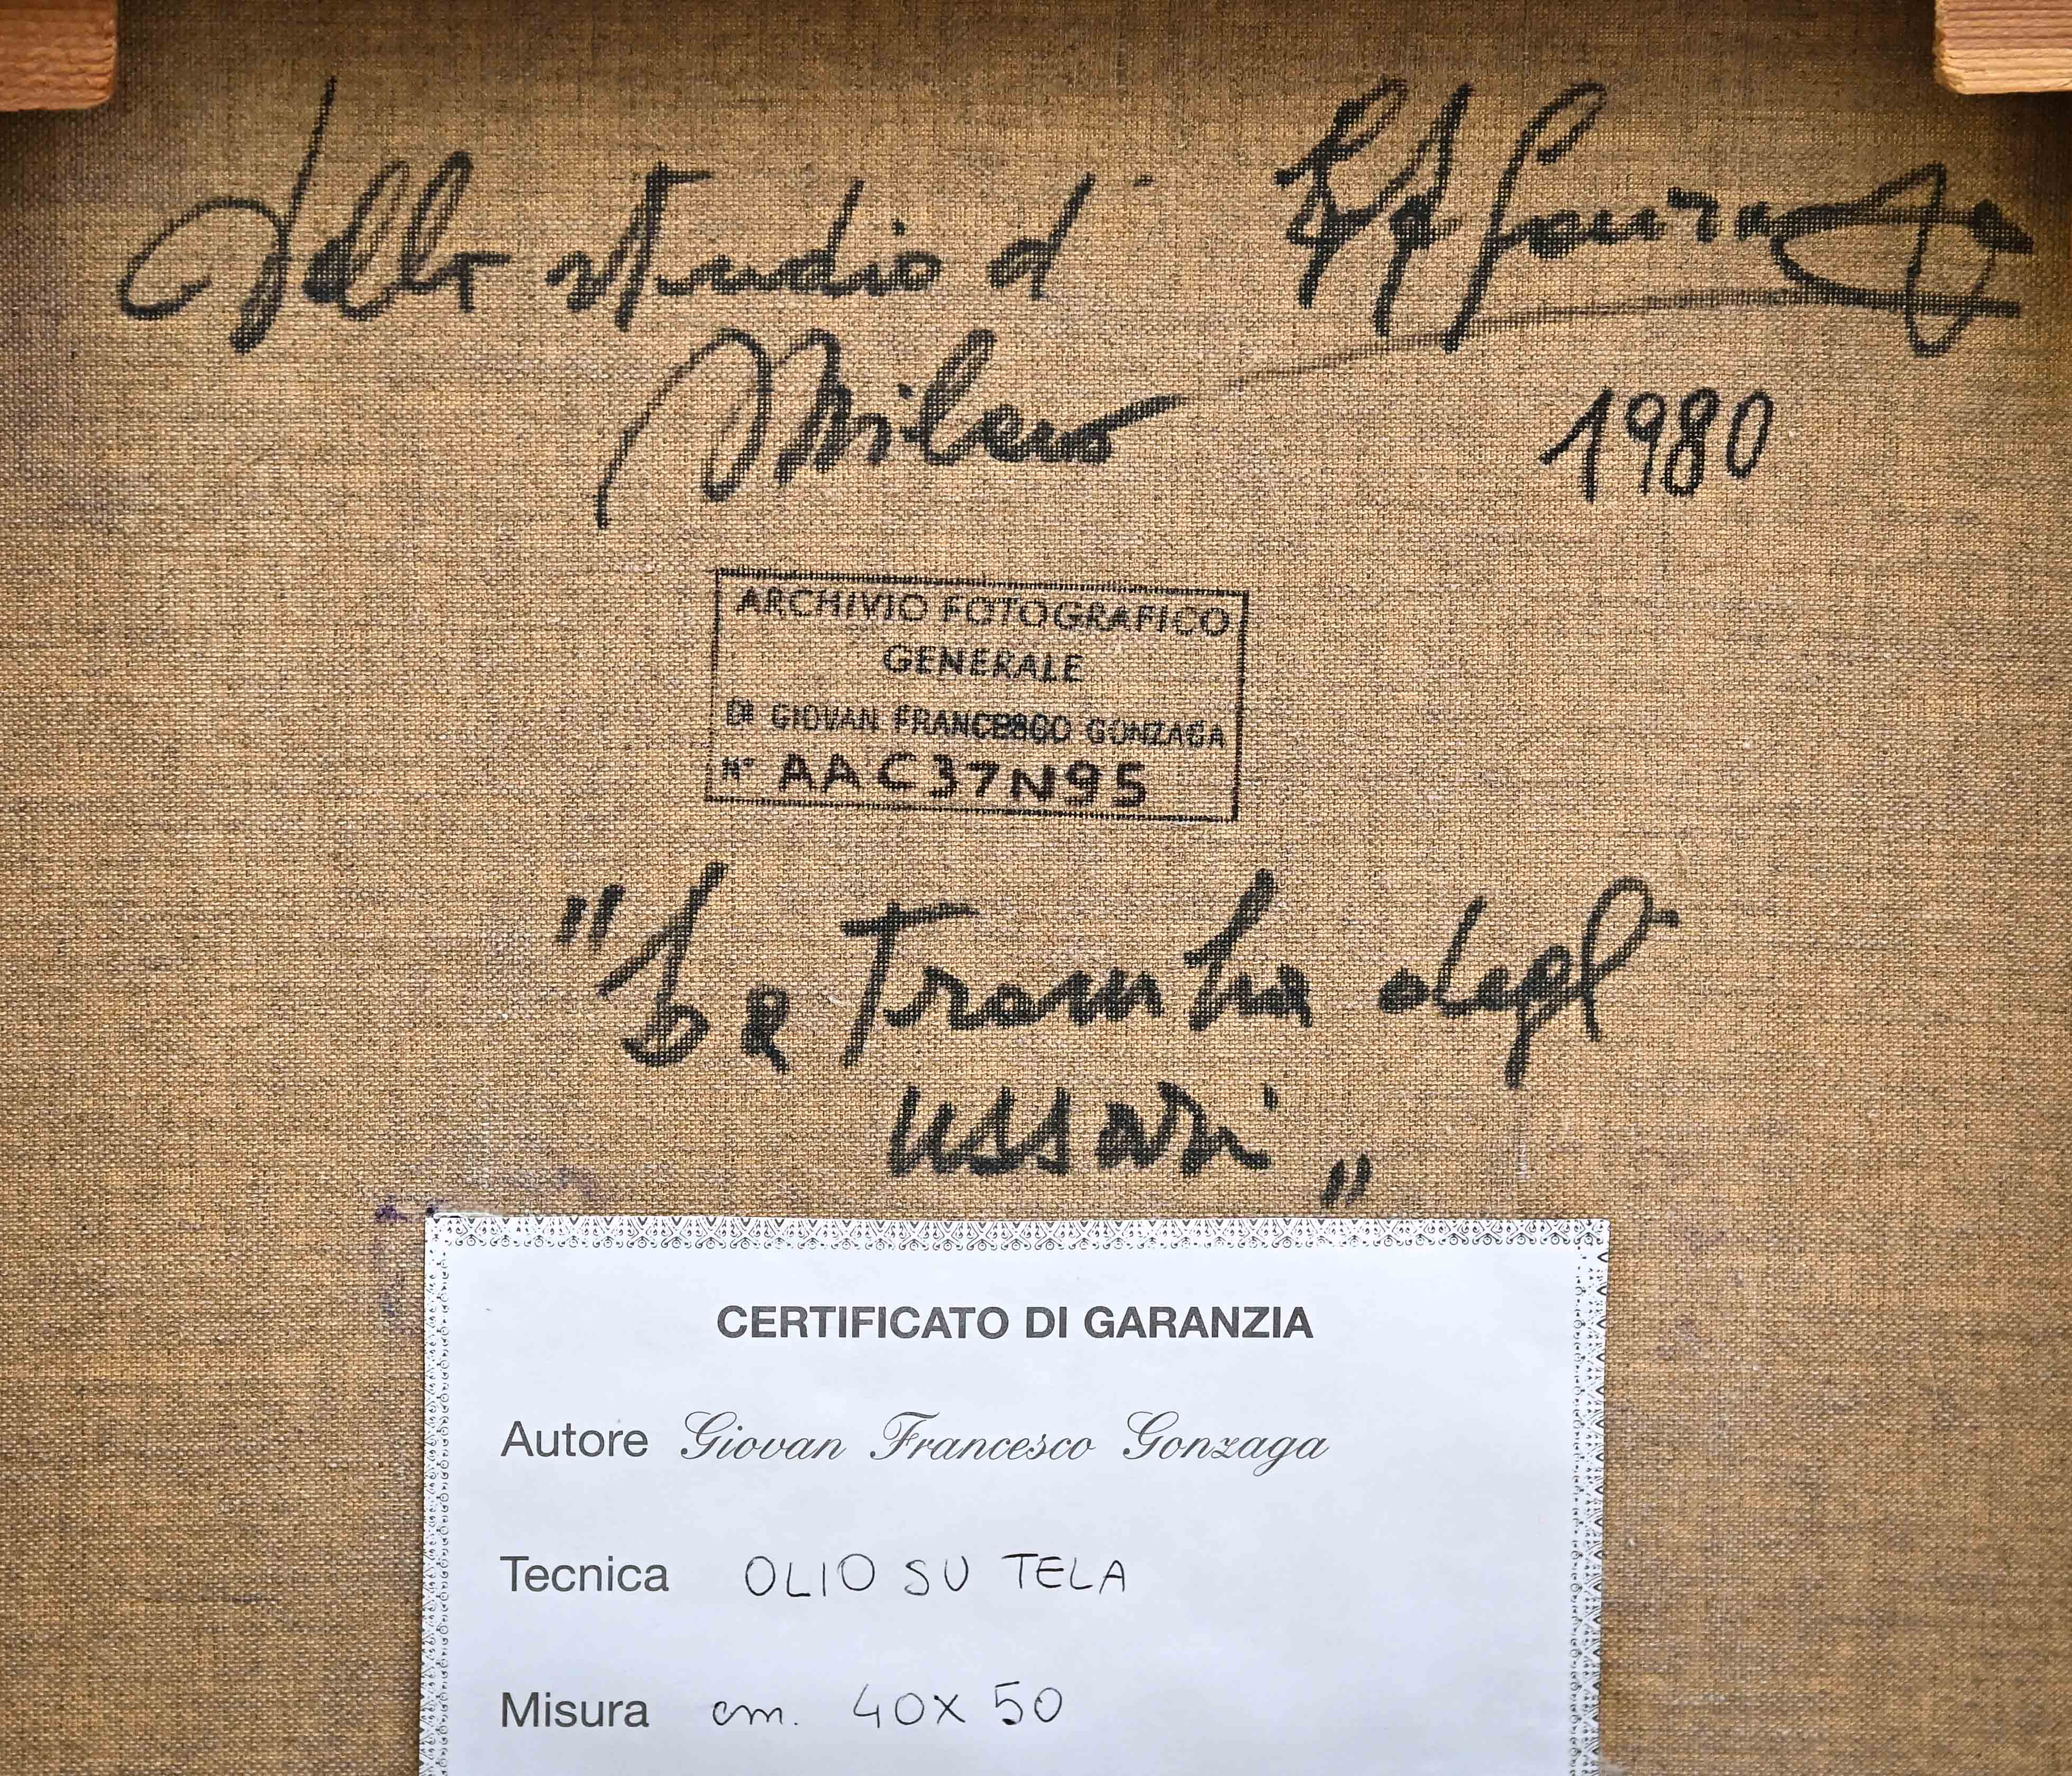 dallo studio di GFGonzaga
Milano
1980
ARCHIVIO FOTOGRAFICO
GENERALE
DI GIOVAN FRANCESCO GONZAGA
N° AAC37N95
"La Tromba degli
ussari"
CERTIFICATO DI GARANZIA
Autore Giovan Francesco Gonzaga
Tecnica OLIO SU TELA
Misura cm. 40x50